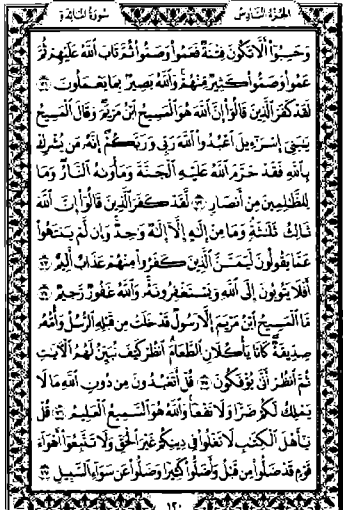 الجزء السادس
سورة المائدة
وَحَسِبُوٓا۟ أَلَّا تَكُونَ فِتْنَةٌ فَعَمُوا۟ وَصَمُّوا۟ ثُمَّ تَابَ ٱللَّهُ عَلَيْهِمْ ثُمَّ
عَمُوا۟ وَصَمُّوا۟ كَثِيرٌ مِّنْهُمْ وَٱللَّهُ بَصِيرٌۢ بِمَا يَعْمَلُونَ ٧١
لَقَدْ كَفَرَ ٱلَّذِينَ قَالُوٓا۟ إِنَّ ٱللَّهَ هُوَ ٱلْمَسِيحُ ٱبْنُ مَرْيَمَ وَقَالَ ٱلْمَسِيحُ
يَٰبَنِىٓ إِسْرَٰٓءِيلَ ٱعْبُدُوا۟ ٱللَّهَ رَبِّى وَرَبَّكُمْ إِنَّهُۥ مَن يُشْرِكْ
بِٱللَّهِ فَقَدْ حَرَّمَ ٱللَّهُ عَلَيْهِ ٱلْجَنَّةَ وَمَأْوَىٰهُ ٱلنَّارُ وَمَا
لِلظَّٰلِمِينَ مِنْ أَنصَارٍ ٧٢ لَّقَدْ كَفَرَ ٱلَّذِينَ قَالُوٓا۟ إِنَّ ٱللَّهَ
ثَالِثُ ثَلَٰثَةٍ وَمَا مِنْ إِلَٰهٍ إِلَّآ إِلَٰهٌ وَٰحِدٌ وَإِن لَّمْ يَنتَهُوا۟
عَمَّا يَقُولُونَ لَيَمَسَّنَّ ٱلَّذِينَ كَفَرُوا۟ مِنْهُمْ عَذَابٌ أَلِيمٌ ٧٣
أَفَلَا يَتُوبُونَ إِلَى ٱللَّهِ وَيَسْتَغْفِرُونَهُۥ وَٱللَّهُ غَفُورٌ رَّحِيمٌ ٧٤
مَّا ٱلْمَسِيحُ ٱبْنُ مَرْيَمَ إِلَّا رَسُولٌ قَدْ خَلَتْ مِن قَبْلِهِ ٱلرُّسُلُ وَأُمُّهُۥ
صِدِّيقَةٌ كَانَا يَأْكُلَانِ ٱلطَّعَامَ ٱنظُرْ كَيْفَ نُبَيِّنُ لَهُمُ ٱلْءَايَٰتِ
ثُمَّ ٱنظُرْ أَنَّىٰ يُؤْفَكُونَ ٧٥ قُلْ أَتَعْبُدُونَ مِن دُونِ ٱللَّهِ مَا لَا
يَمْلِكُ لَكُمْ ضَرًّا وَلَا نَفْعًا وَٱللَّهُ هُوَ ٱلسَّمِيعُ ٱلْعَلِيمُ ٧٦ قُلْ
يَٰٓأَهْلَ ٱلْكِتَٰبِ لَا تَغْلُوا۟ فِى دِينِكُمْ غَيْرَ ٱلْحَقِّ وَلَا تَتَّبِعُوٓا۟ أَهْوَآءَ
قَوْمٍ قَدْ ضَلُّوا۟ مِن قَبْلُ وَأَضَلُّوا۟ كَثِيرًا وَضَلُّوا۟ عَن سَوَآءِ ٱلسَّبِيلِ ٧٧
١٢٠